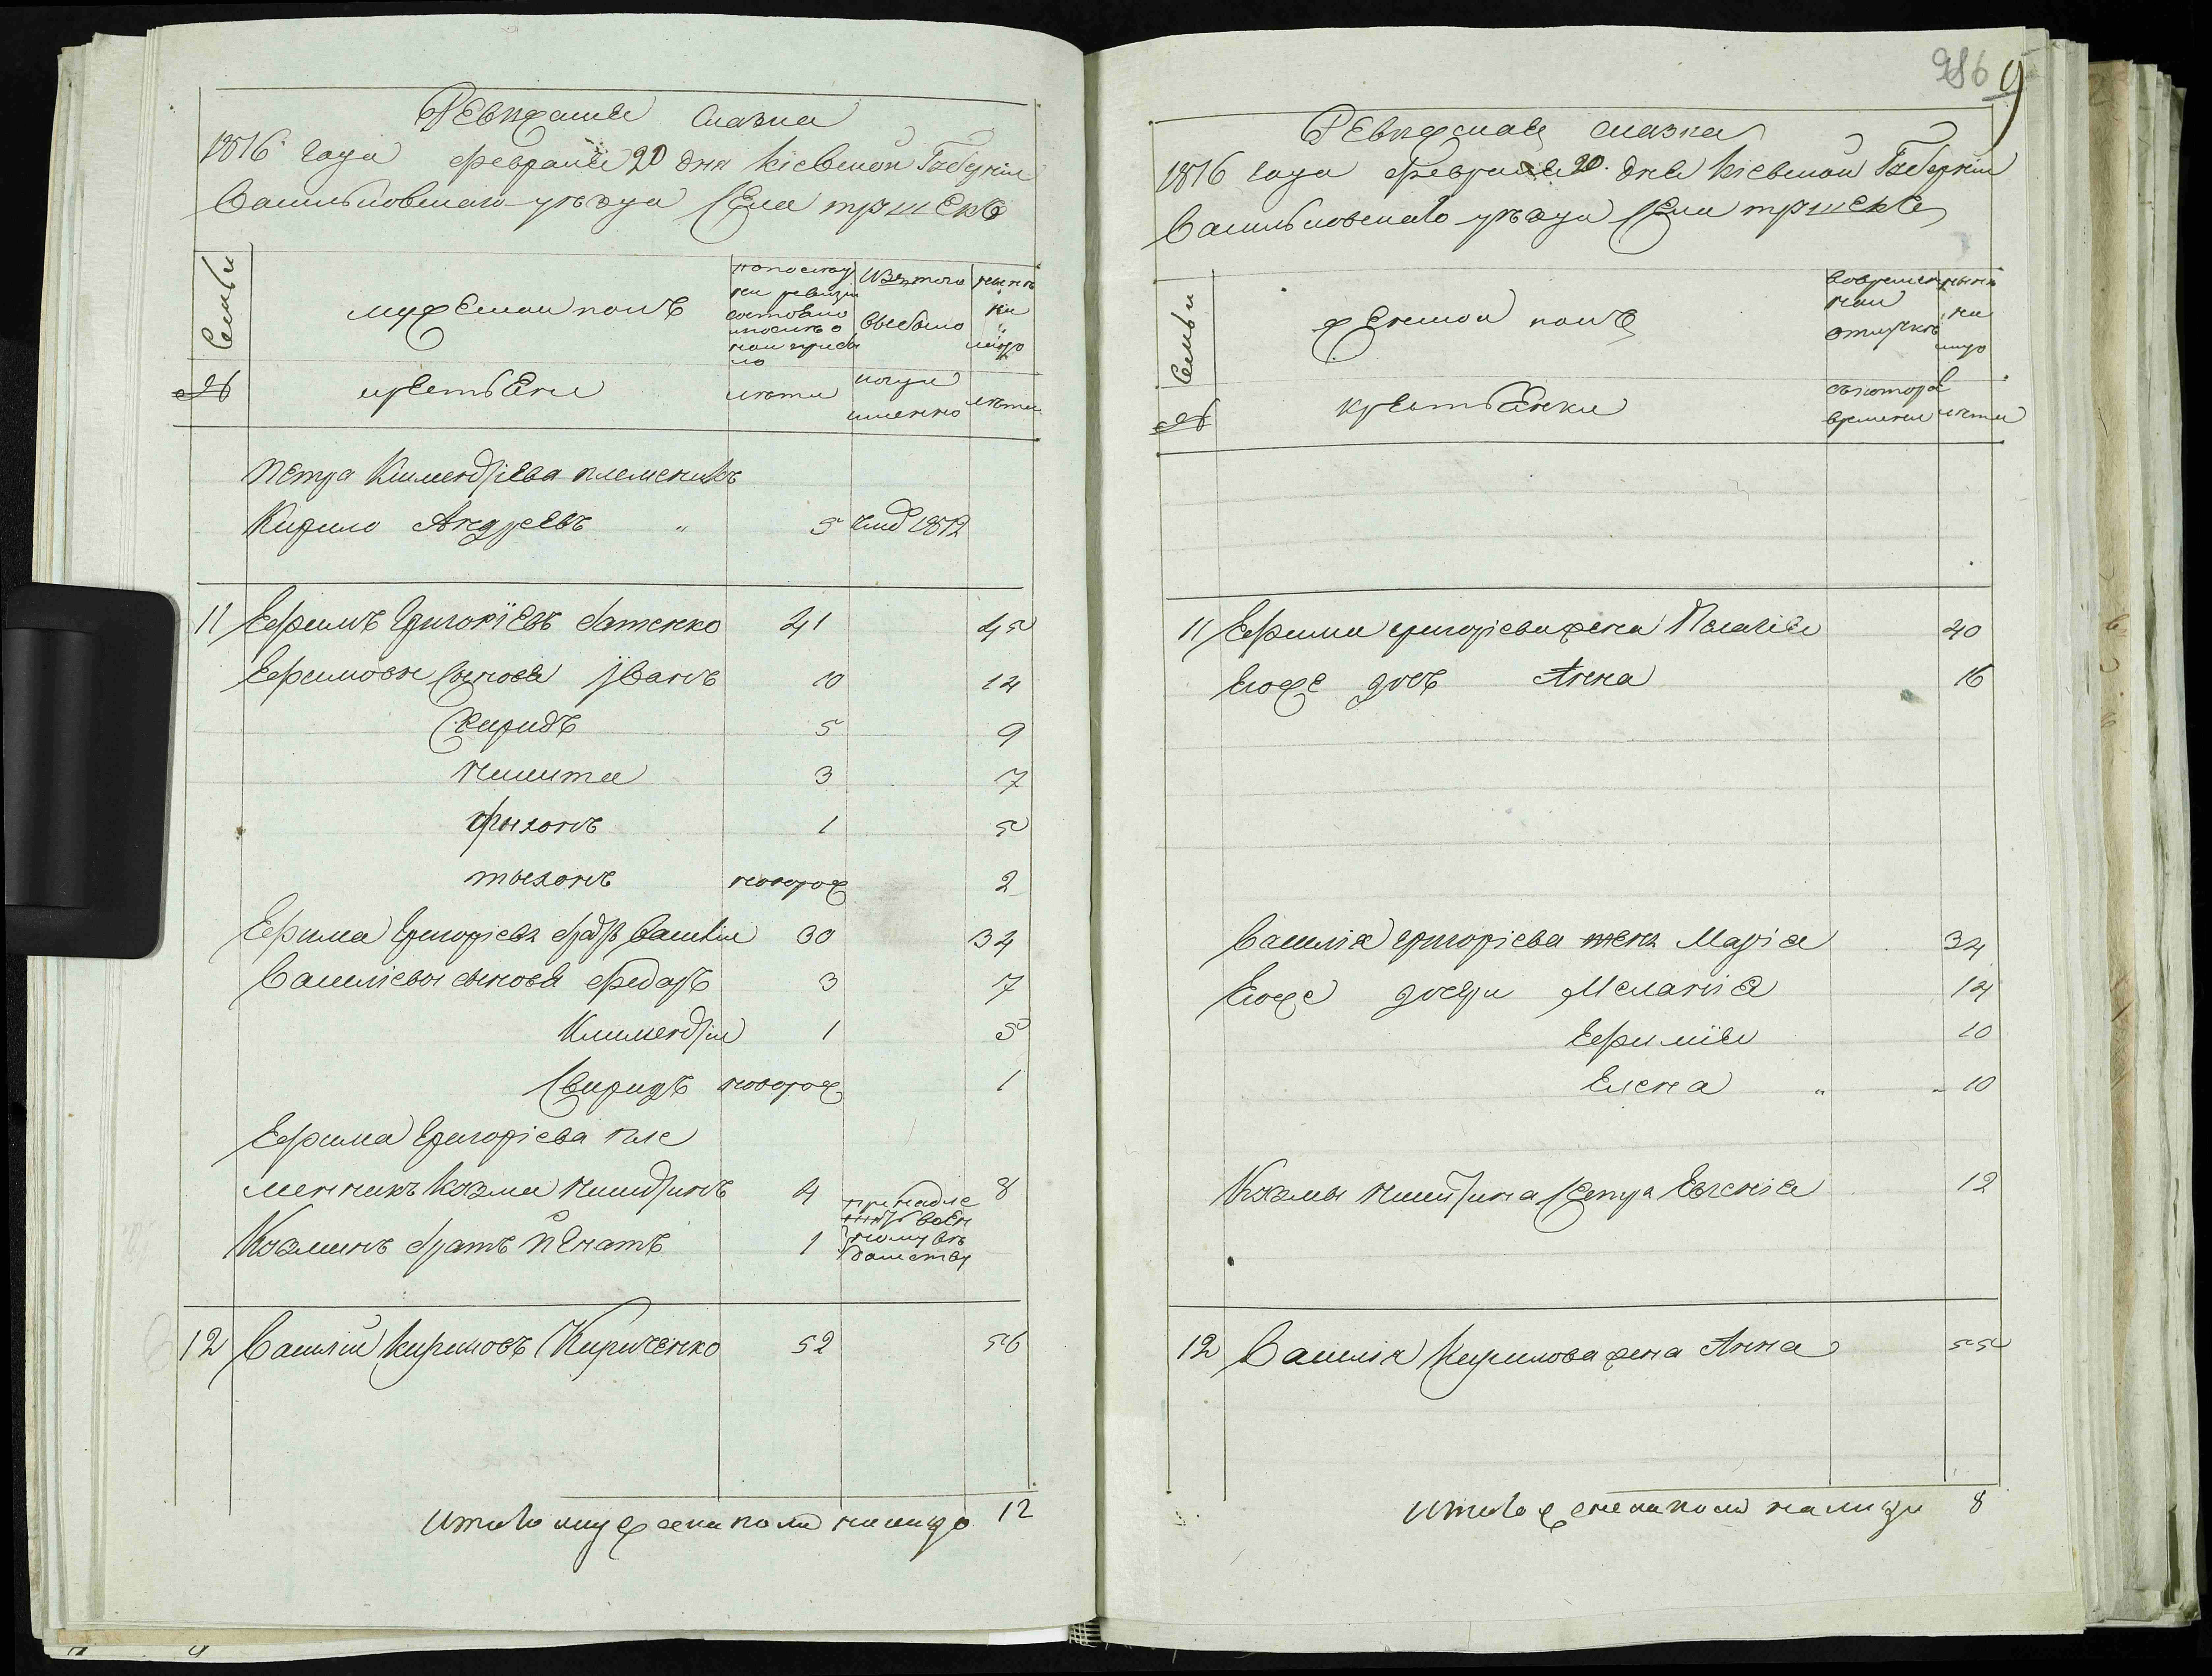 Ревижская сказка
1816 года февраля 20 дня Кіевской Губерніи
Васильковскаго уѣзда села
Семьи
мужескои полъ
по последней ревизіи состояло и после оной прибыло
Изъ того выбыло
ныне на лицо
№
крестьяне
лѣта
когда именно
лѣта
Петра Климентіева племеникъ
Кирило Андреевъ " 5 1812
11 Ефимъ Григоріевъ Батенко 41 45
Ефимовы сынове Іванъ 10 14
Свиридъ 5 9
Никита 3 7
1 5
тихонъ новорож 2
Ефима Григоріева братъ Василій 30 34
Василіевы сынове Федоръ 3 7
Климентій 1 5
Свиридъ новорож 1
Ефима Григоріева пле
менникъ Козма Никитинъ 4 8
Козминъ братъ Игнатъ 1 принадле житъ военному вѣдомству
12 Василій Кириловъ Кириченко 52 56
Итого мужеска пола налицо 12
286 9
Ревижская сказка
1816 года февраля 20 дня Кіевской Губерніи
Васильковскаго уѣзда села
Семьи
женской полъ
во временной отлучкѣ
ныне на лицо
№
крестьянки
съ котораго времени
лѣта
11 Ефима григоріева жена Пелагія 40
Егоже дочь Анна 16
Василія григоріева жена Марія 34
Егоже дочери Меланія 14
Ефимія 10
Елена " 10
Козмы никитина сестра Евгенія 12
12 Василія Кирилова жена Анна 55
Итого женска пола на лицо 8